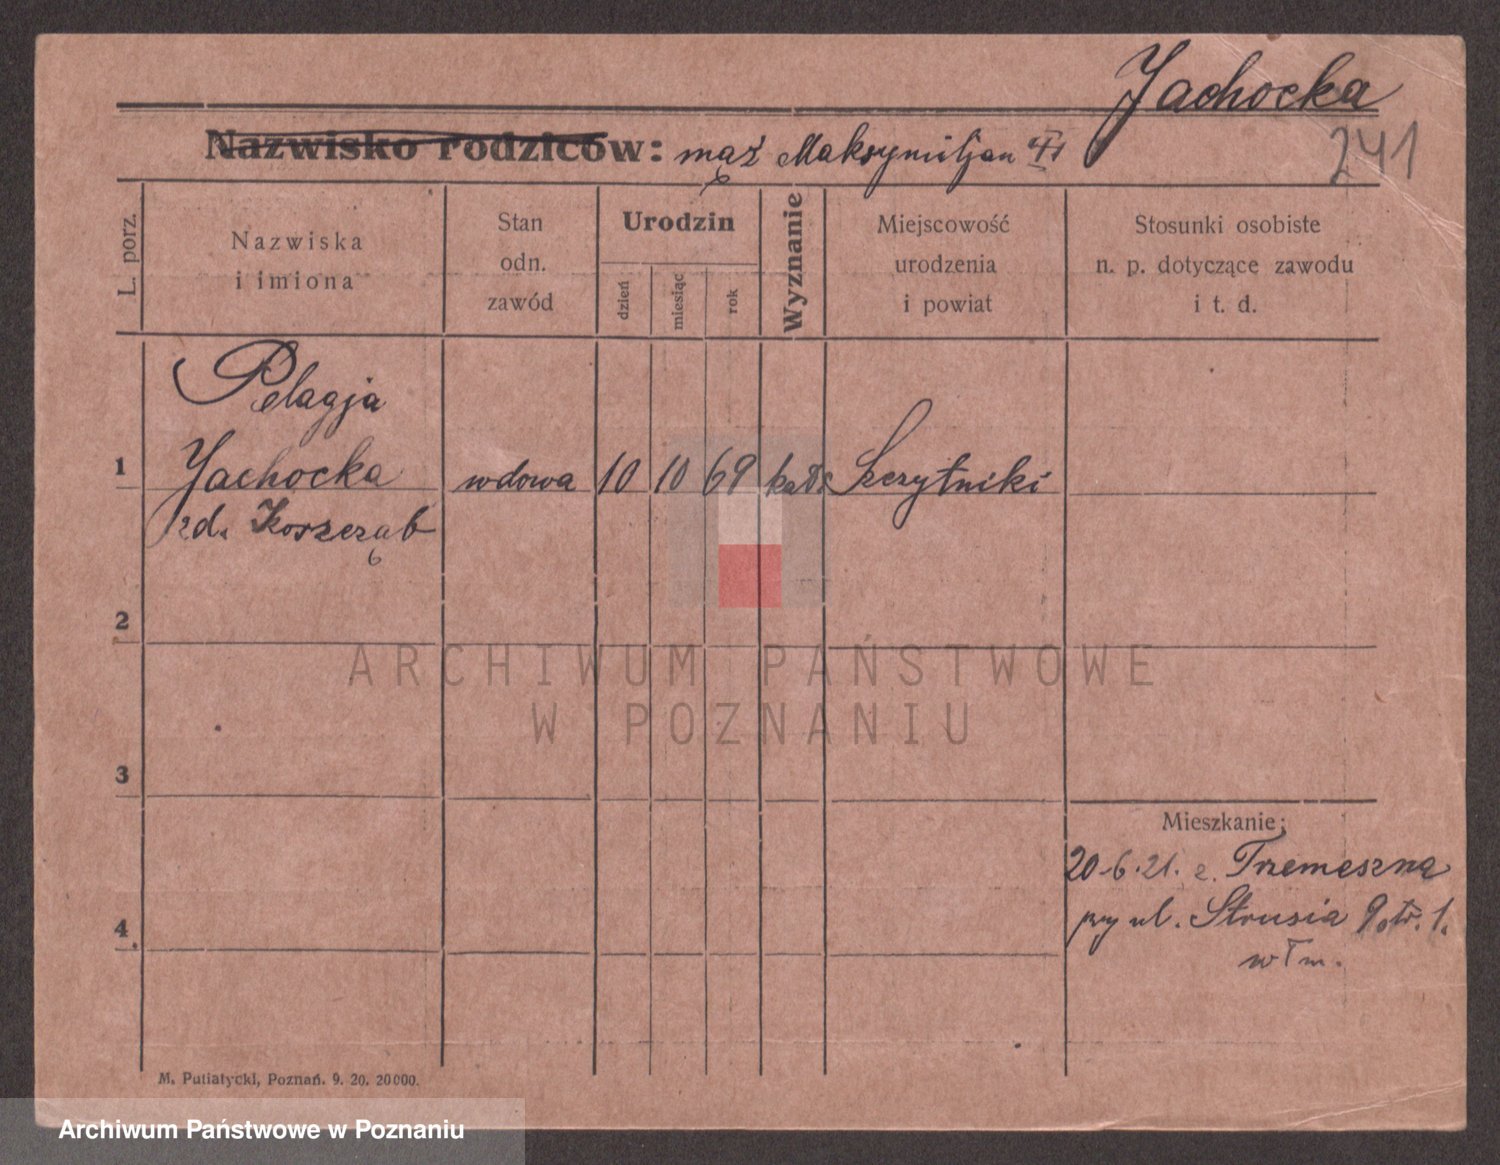 Jachocka
241
Nazwisko rodziców: mąż Maksymiljan
L. porz.
Nazwiska
i imiona
Stan
odn.
zawód
Urodzin
dzień
miesiąc
rok
Wyznanie
Miejscowość
urodzenia
i powiat
Stosunki osobiste
n. p. dotyczące zawodu
i t. d.
Pelagja
1 Jachocka wdowa 10 10 69 kat. Szczytniki
zd. Koszcząb
2
3
4
Mieszkanie:
20.6.21. z. Trzemeszna
przy ul. Strusia 9 ptr. 1.
włm.
M. Putiatycki, Poznań. 9. 20. 20000.
ARCHIWUM PAŃSTWOWE
W POZNANIU
Archiwum Państwowe w Poznaniu